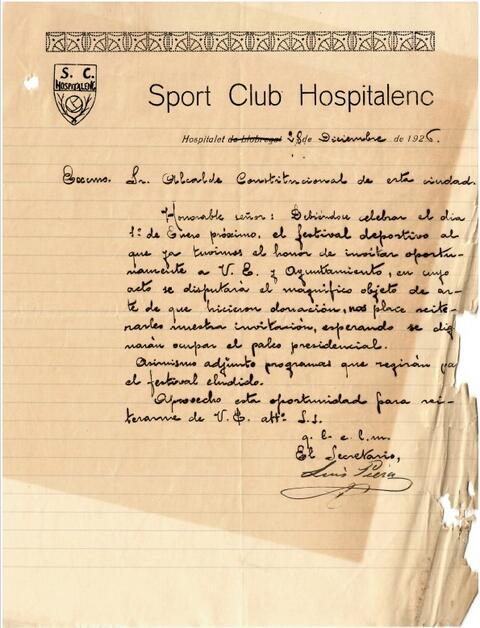 S. C.
HOSPITALENC
Sport Club Hospitalenc
Hospitalet de Llobregat 28 de Diciembre de 1926.
Excmo. Sr. Alcalde Constitucional de esta ciudad.
Honorable señor: Debiéndose celebrar el dia
1º de Enero próximo, el festival deportivo al
que ya tuvimos el honor de invitar oportu-
namente a V. E. y Ayuntamiento, en cuyo
acto se disputará el magnífico objeto de ar-
te de que hicieron donación, nos place reite-
rarles nuestra invitación, esperando se dig
narán ocupar el palco presidencial.
Asimismo adjunto programas que regirán pa
el festival eludido.
Aprovecho esta oportunidad para rei-
terarme de V. E. attº. S.S.
q. b. e. l. m.
El Secretario,
Luis Piera